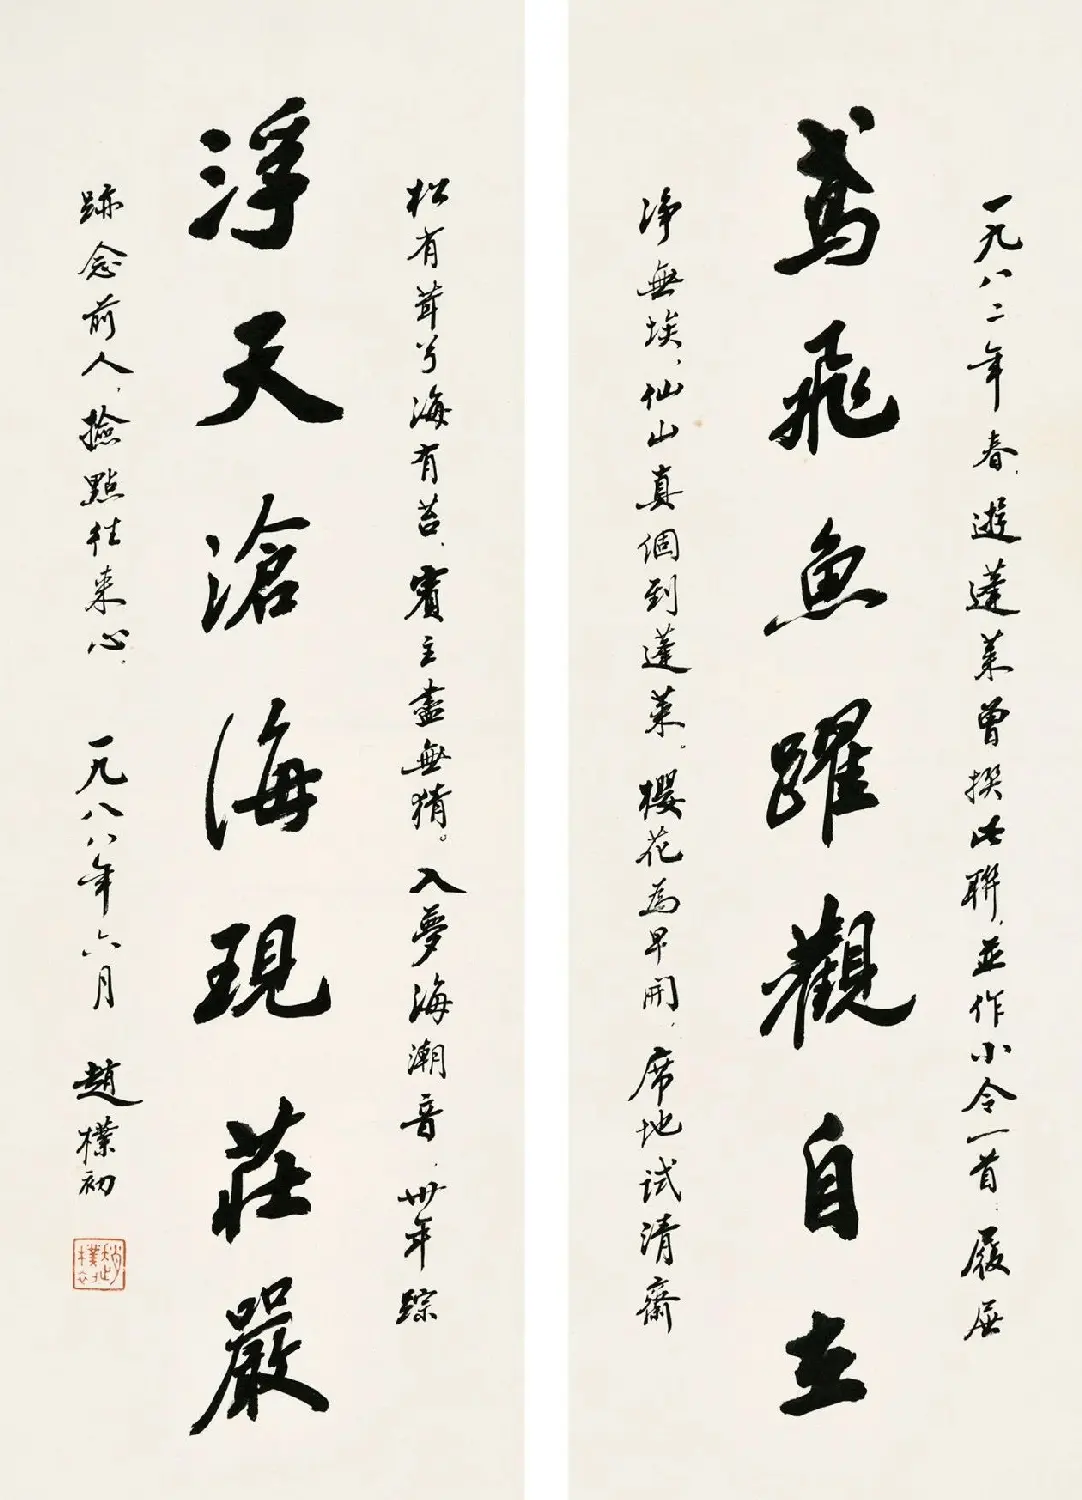 一九八二年春，遊蓬萊曾撰此聯，並作小令一首：履屐
鳶飛魚躍觀自在
净無埃，仙山真個到蓬萊。櫻花為早開，席地試清齋
松有茸兮海有苔，賓主盡無猜。入夢海潮音，卅年踪
淨天滄海現莊嚴
跡念前人，撿點往來心。一九八八年六月 趙樸初
趙樸初